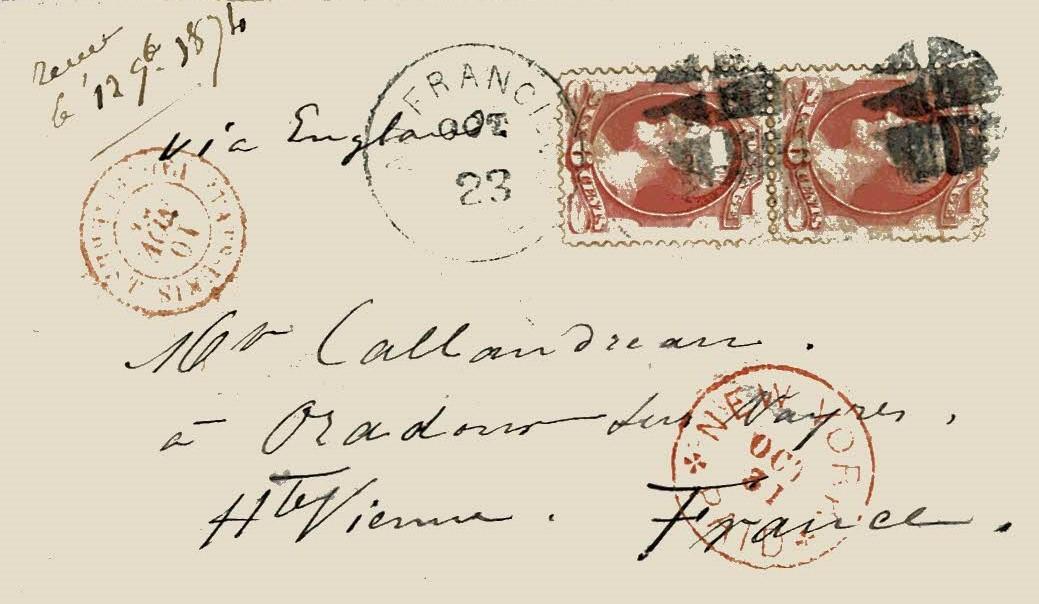 le 12 9b 1874
via England
FRANCI
OCT
23
Mr Callandreau.
à Oradour sur Vayres,
Hte Vienne. France.
NEW YORK
OCT
31
PAID